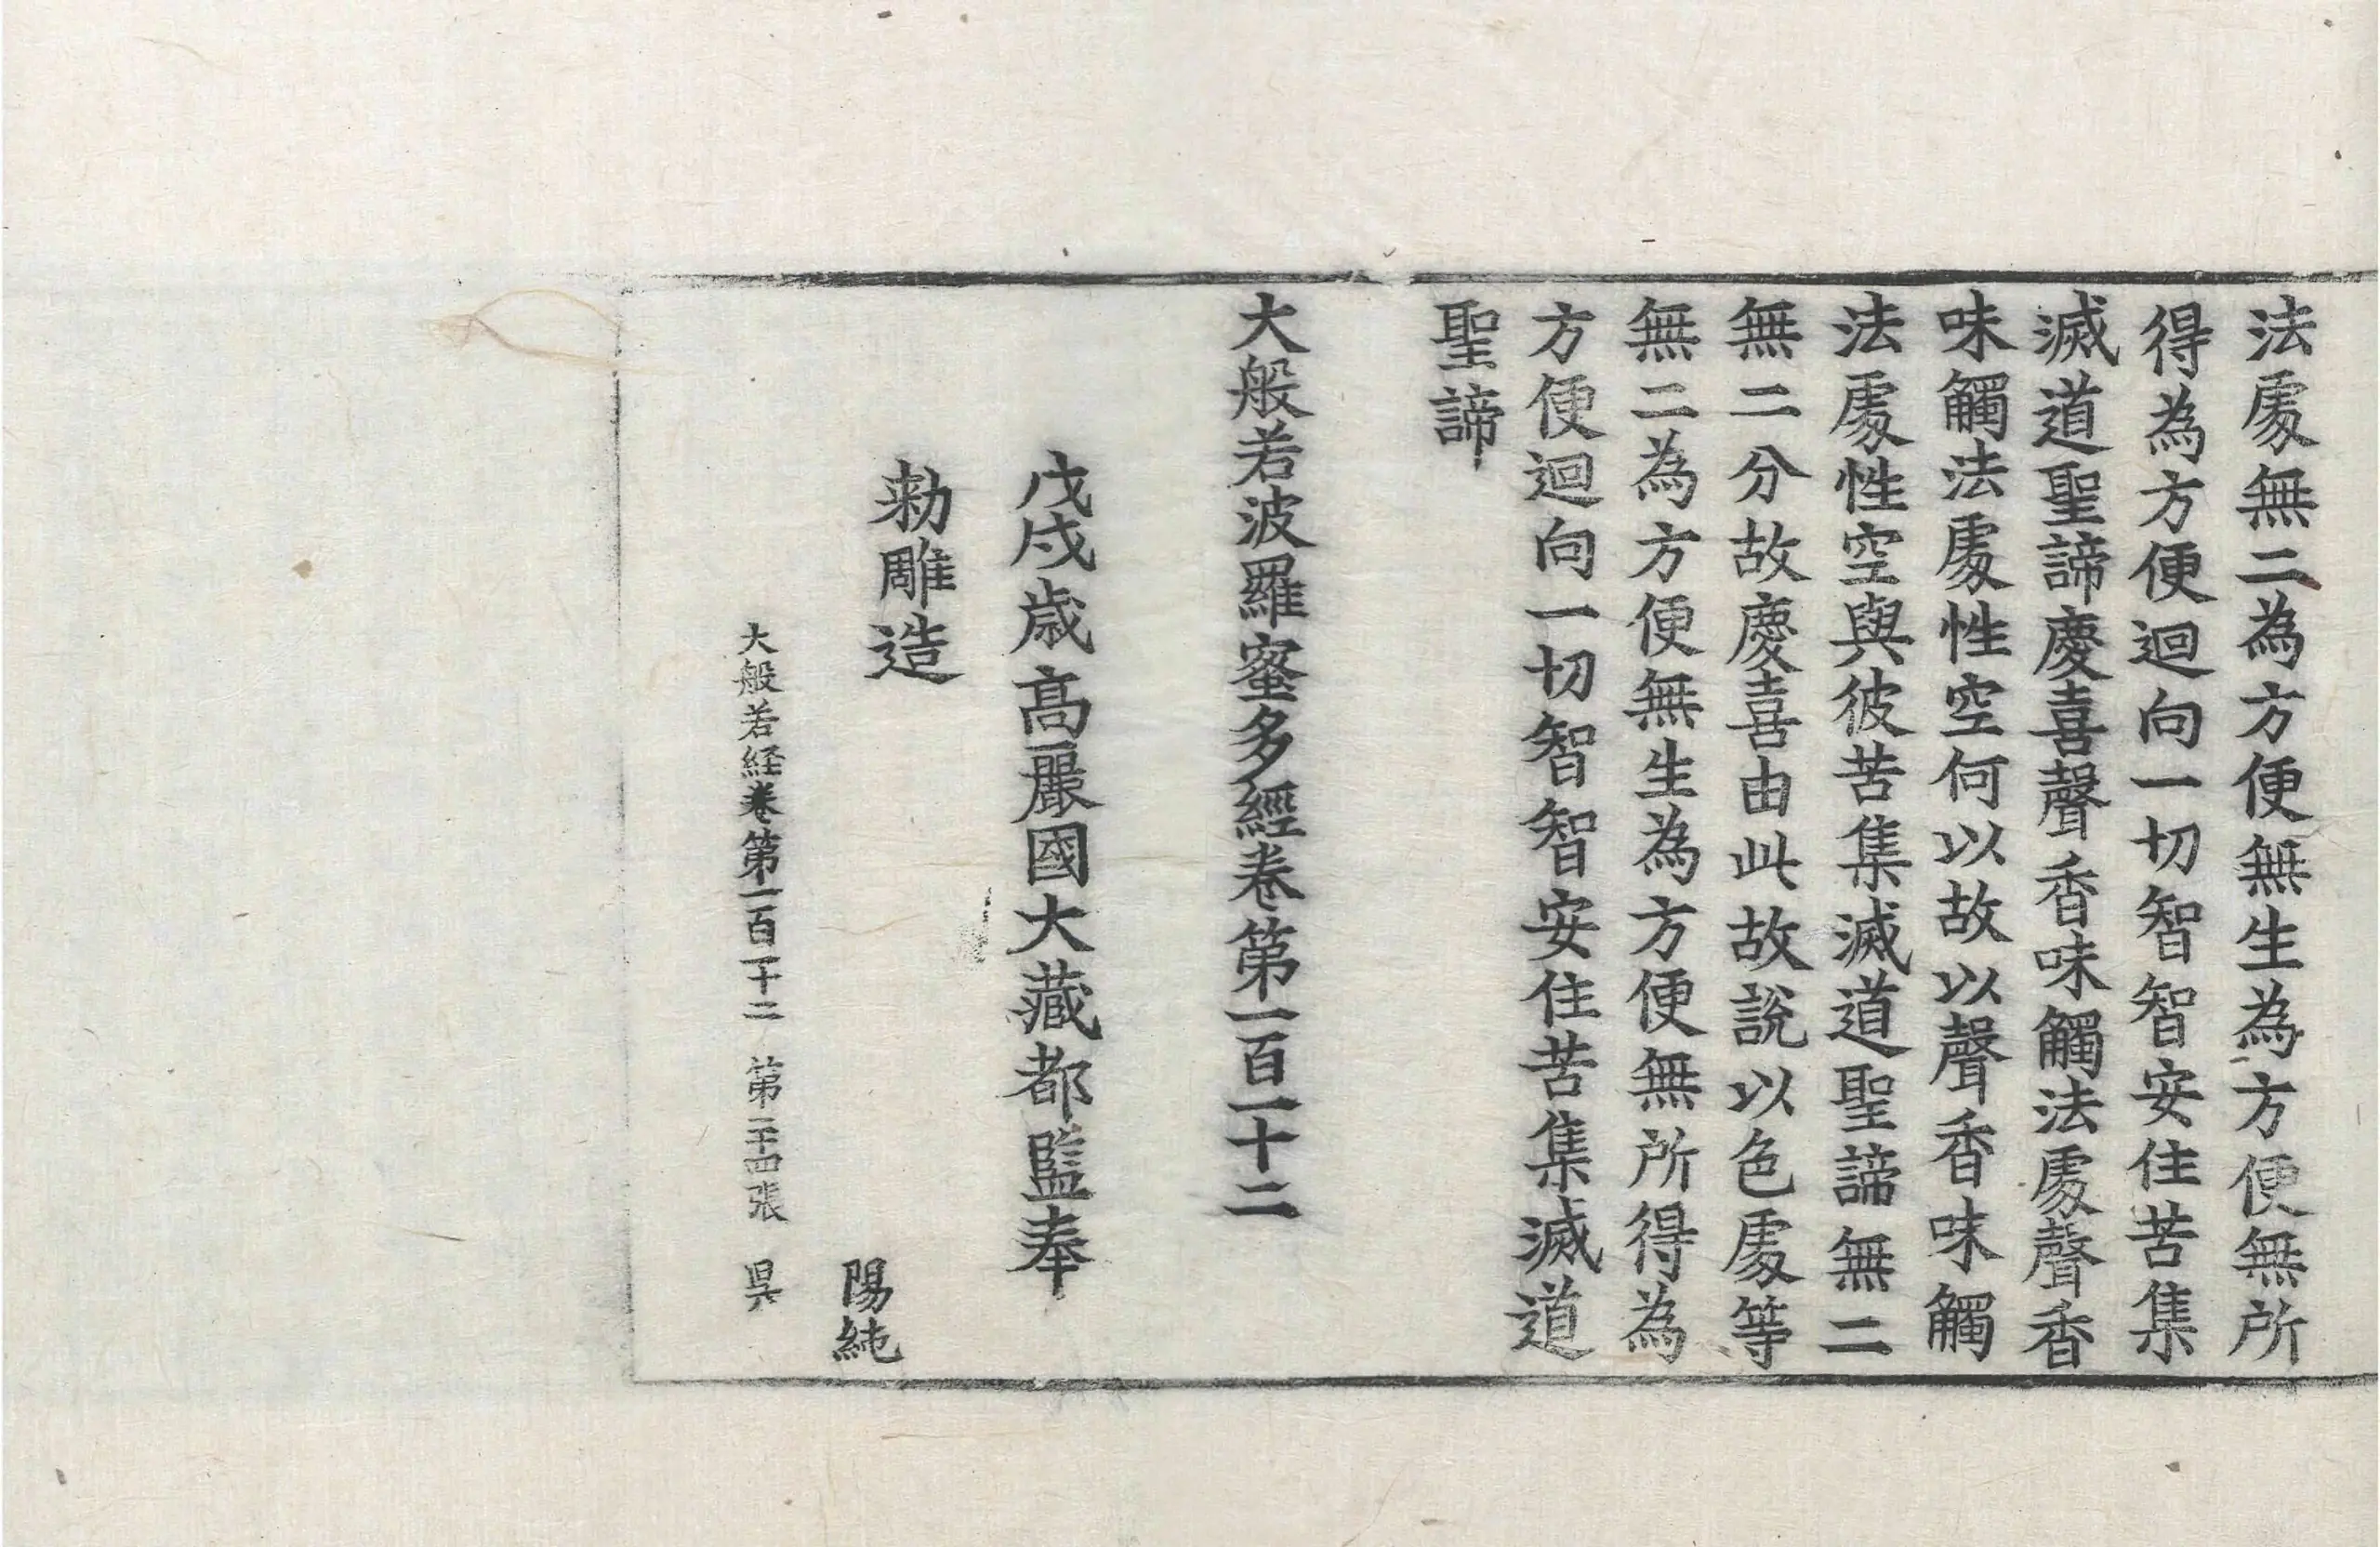 法處無二為方便無生為方便無所
得為方便迴向一切智智安住苦集
滅道聖諦慶喜聲香味觸法處聲香
味觸法處性空何以故以聲香味觸
法處性空與彼苦集滅道聖諦無二
無二分故慶喜由此故說以色處等
無二為方便無生為方便無所得為
方便迴向一切智智安住苦集滅道
聖諦
大般若波羅蜜多經卷第一百一十二
戊戌歲高麗國大藏都監奉
勅雕造
陽純
大般若経卷第一百一十二 第二十四張 昃